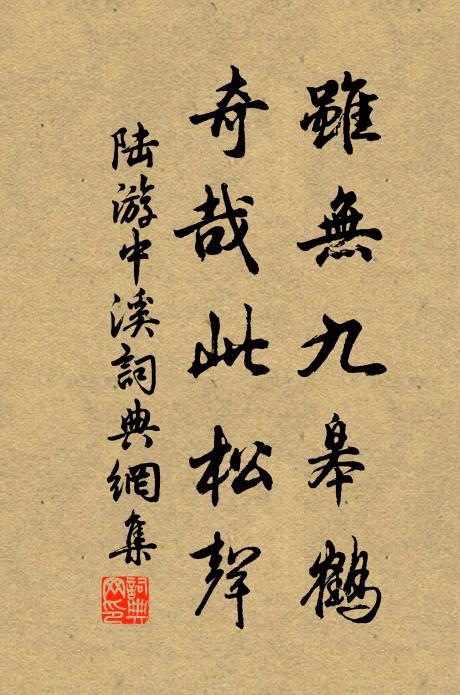 雖無九皋鶴
奇哉此松聲
陸游中溪詞典網集
詞典網印